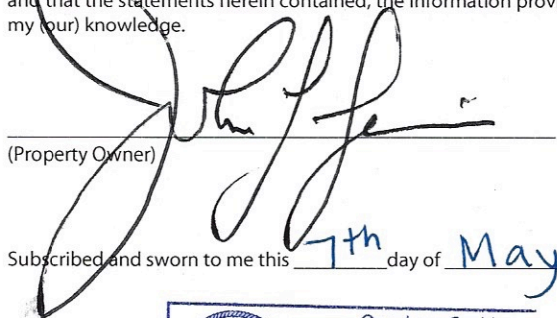 and that the statements herein contained, the information prov
my (our) knowledge.
John
(Property Owner)
Subscribed and sworn to me this 7th day of May